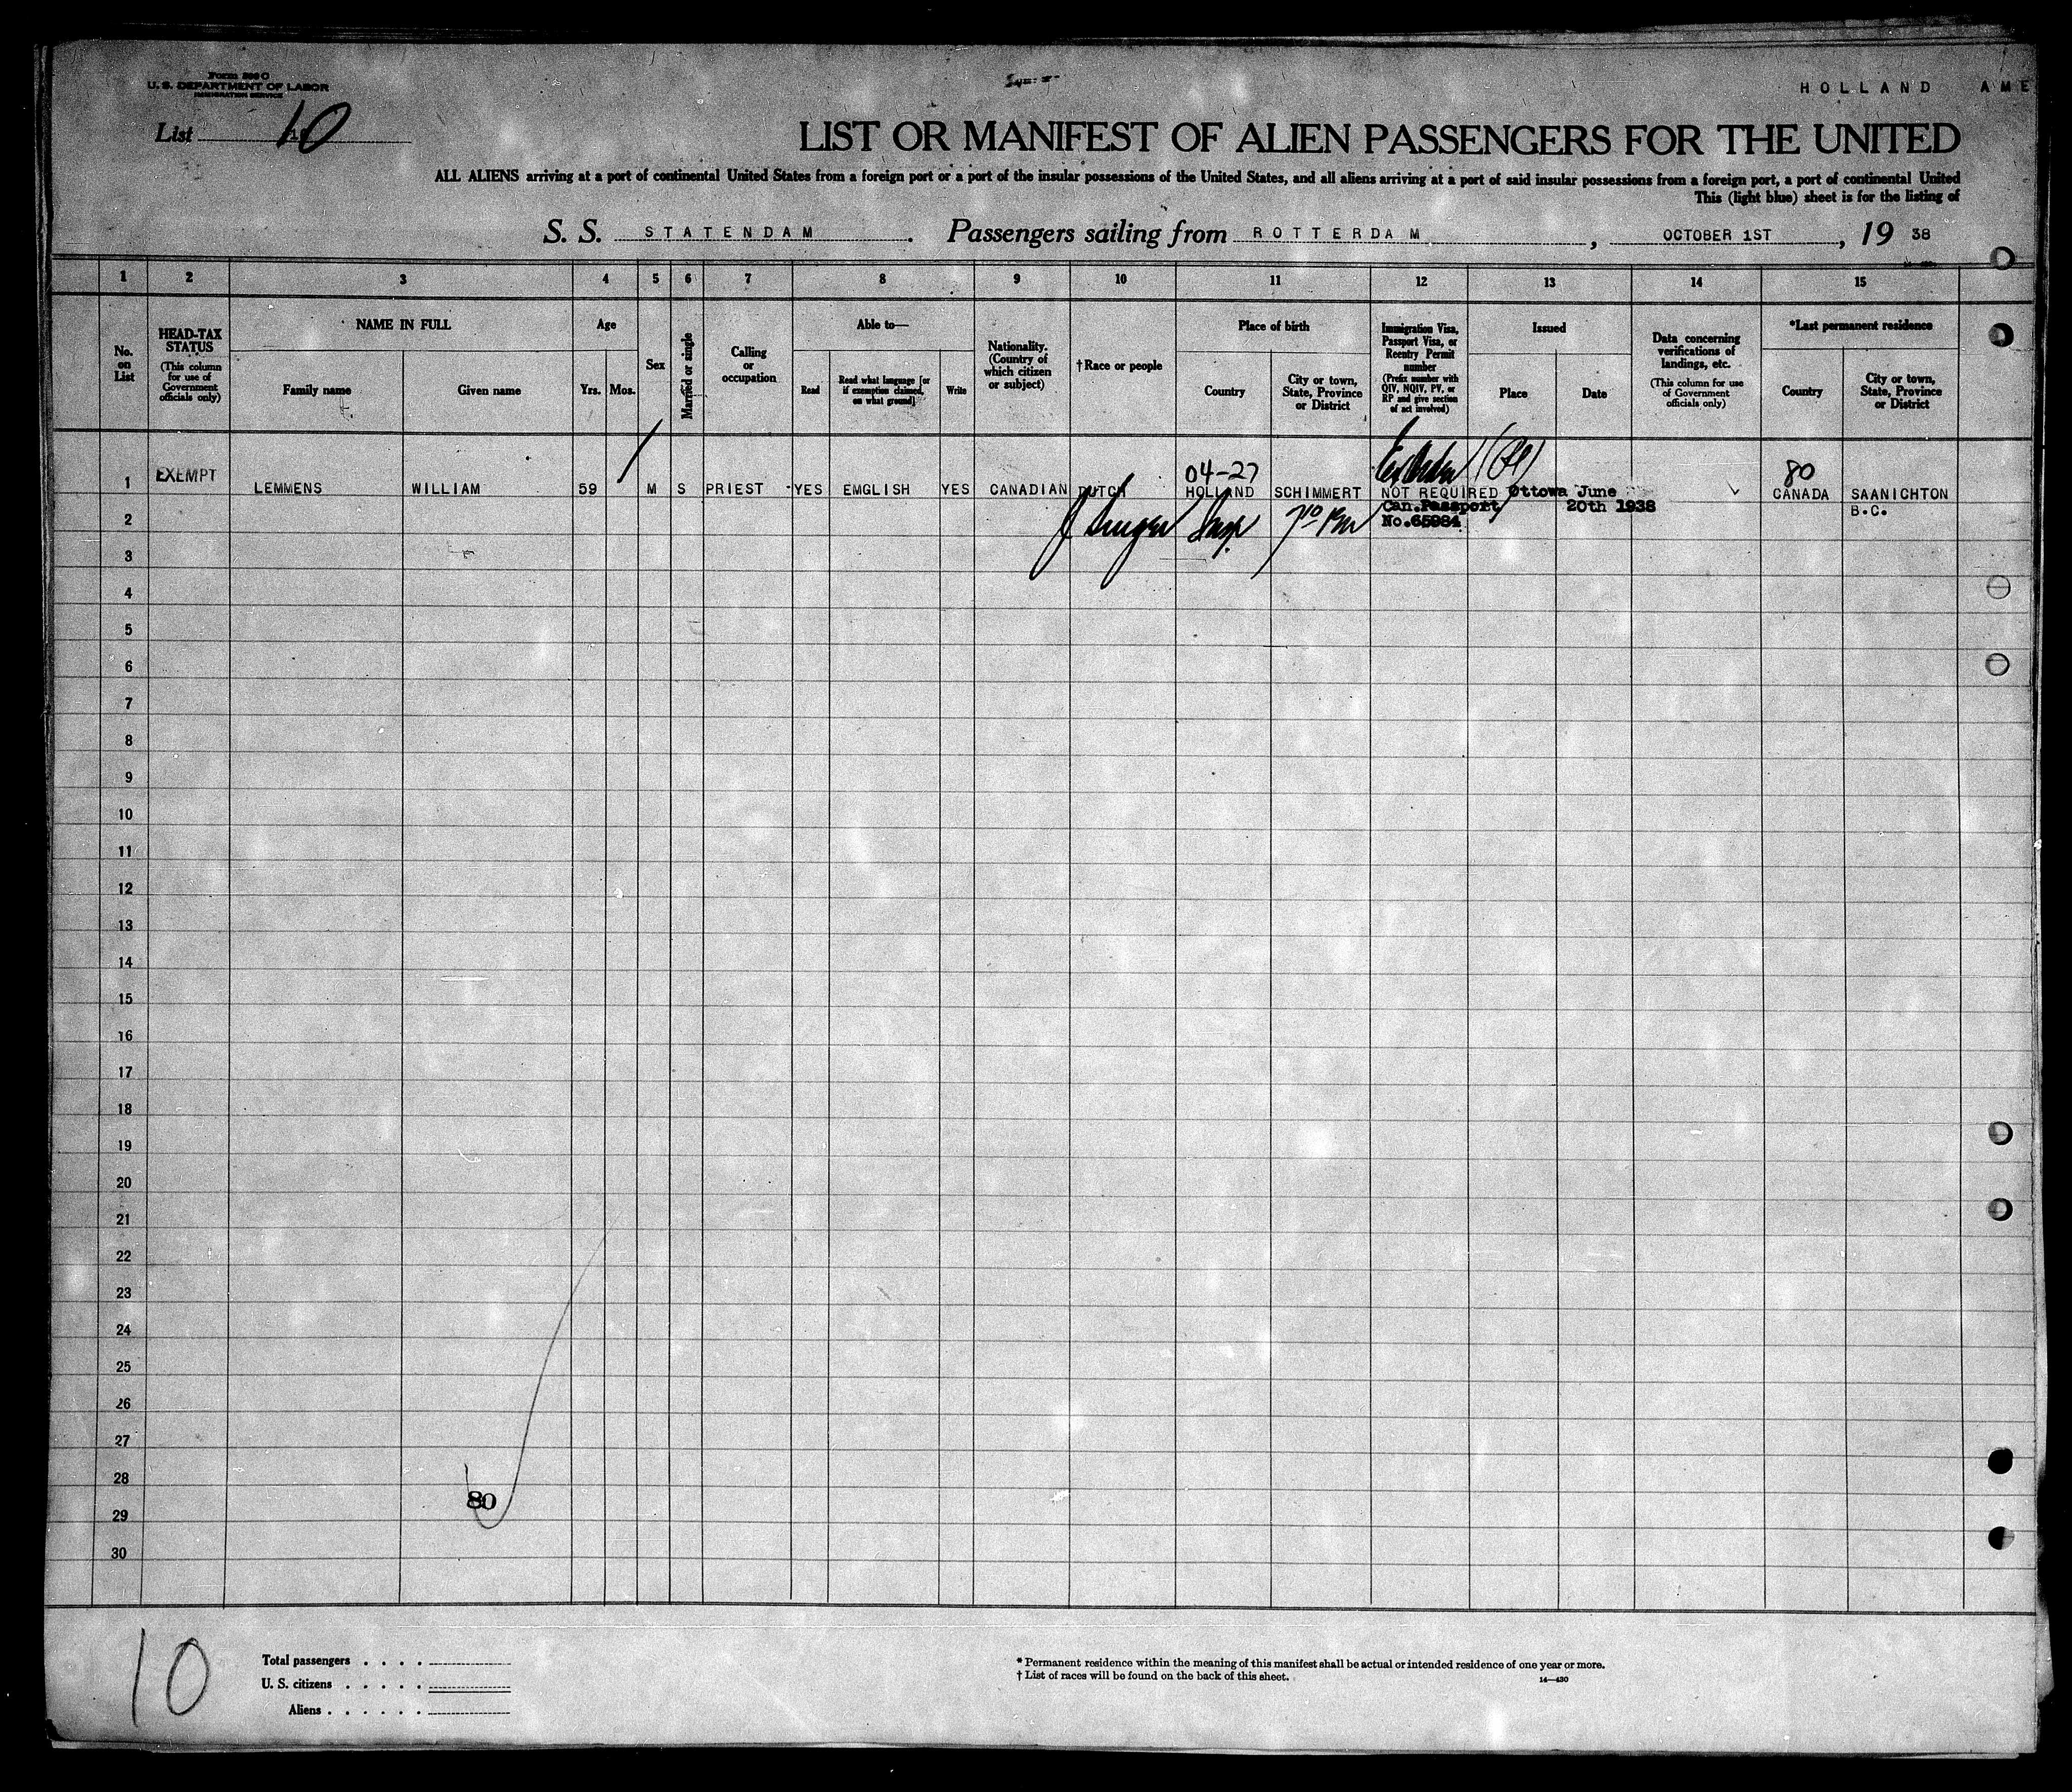 Form 500 C
U. S. DEPARTMENT OF LABOR
IMMIGRATION SERVICE
HOLLAND AME
List 10
LIST OR MANIFEST OF ALIEN PASSENGERS FOR THE UNITED
ALL ALIENS arriving at a port of continental United States from a foreign port or a port of the insular possessions of the United States, and all aliens arriving at a port of said insular possessions from a foreign port, a port of continental United
This (light blue) sheet is for the listing of
S. S. STATENDAM. Passengers sailing from ROTTERDAM, OCTOBER 1ST, 19 38
1 2 3 4 5 6 7 8 9 10 11 12 13 14 15
No. on List
HEAD-TAX STATUS
(This column for use of Government officials only)
NAME IN FULL
Family name
Given name
Age
Yrs. Mos.
Sex
Married or single
Calling or occupation
Able to—
Read
Read what language [or if exemption claimed, on what ground]
Write
Nationality. (Country of which citizen or subject)
†Race or people
Place of birth
Country
City or town, State, Province or District
Immigration Visa, Passport Visa, or Reentry Permit number
(Prefix number with QIV, NQIV, PV, or RP and give section of act involved)
Issued
Place
Date
Data concerning verifications of landings, etc.
(This column for use of Government officials only)
*Last permanent residence
Country
City or town, State, Province or District
04-27 80
1 EXEMPT LEMMENS WILLIAM 59 M S PRIEST YES EMGLISH YES CANADIAN DUTCH HOLLAND SCHIMMERT NOT REQUIRED Ottowa June CANADA SAANICHTON
Can.Passport 20th 1938 B.C.
2 No.65984
3
4
5
6
7
8
9
10
11
12
13
14
15
16
17
18
19
20
21
22
23
24
25
26
27
28
80
29
30
10
Total passengers . . . .
U. S. citizens . . . . .
Aliens . . . . . .
* Permanent residence within the meaning of this manifest shall be actual or intended residence of one year or more.
† List of races will be found on the back of this sheet.
14—430